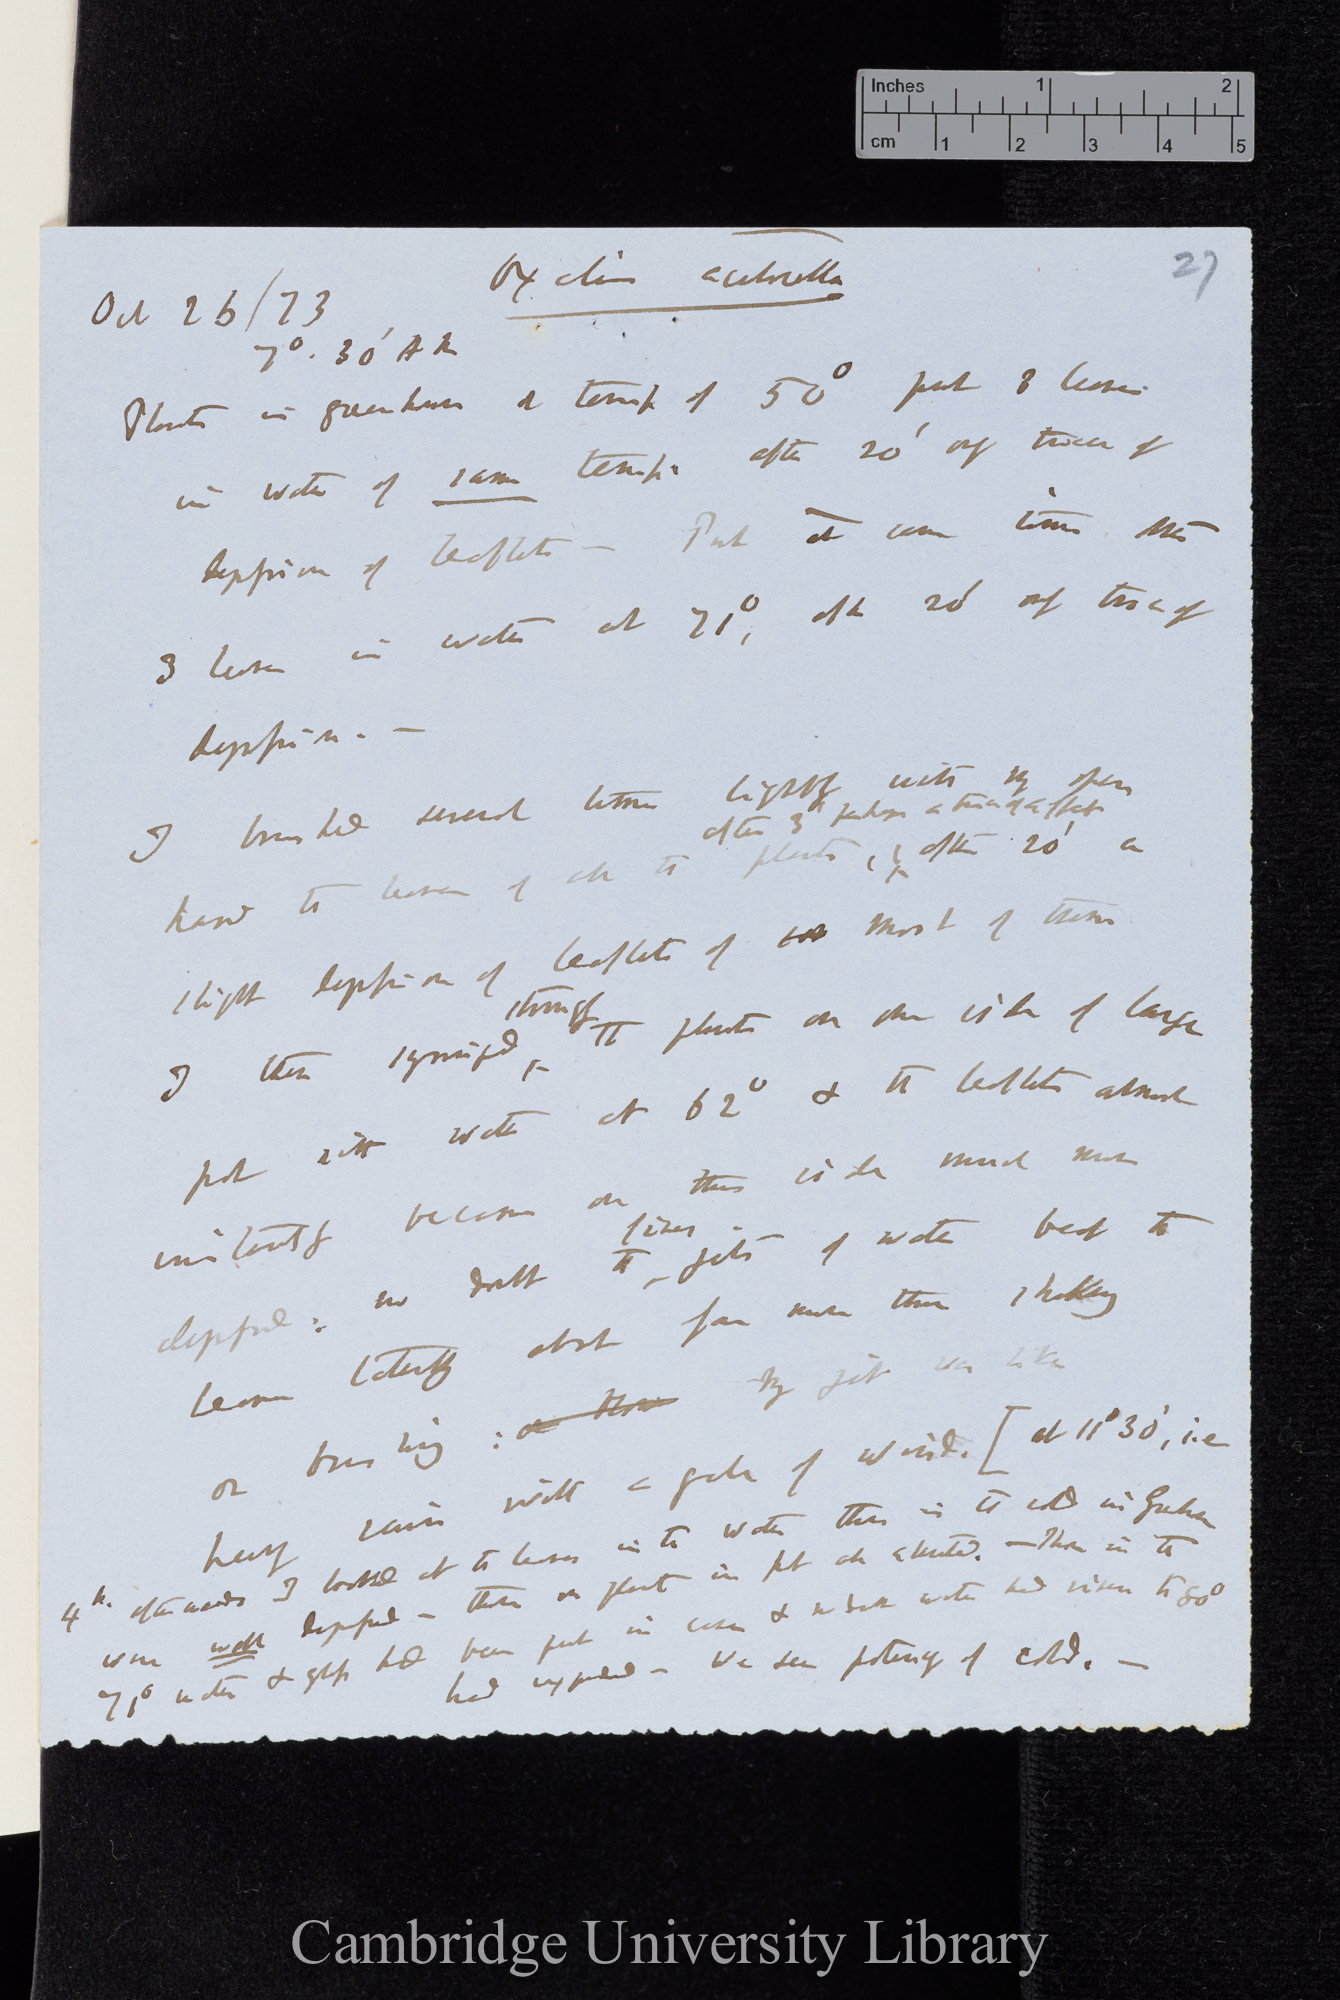 Inches 1 2
cm 1 2 3 4 5
27
Oxalis acetosella
Oct 26/73
7°. 30' A M
Plants in greenhouse at temp of 50° put 3 leaves
in water of same temp. after 20' only trace of
depression of leaflets — Put at same time
3 leaves in water at 71°, after 20' only trace of
depression. —
I brushed several times lightly with my open
after 3' perhaps a trace of effect
hand the leaves of all the plants, & after 20' a
slight depression of leaflets of most of them
strongly
I then syringed the plants on one side of large
pot with water at 62° & the leaflets almost
instantly became on this side much more
fine
depressed: no doubt the jets of water beat the
leaves laterally about far more than shaking
or brushing: My jet was like
heavy rain with a gale of wind. [at 11° 30', i.e
4h. afterwards I looked at the leaves in the water this in the cold in Greenhouse
were well depressed — those on plant in pot all elevated. — Those in the
71° water & glass had been put in case & when water had risen to 80°
had expanded — We see potency of cold. —
Cambridge University Library